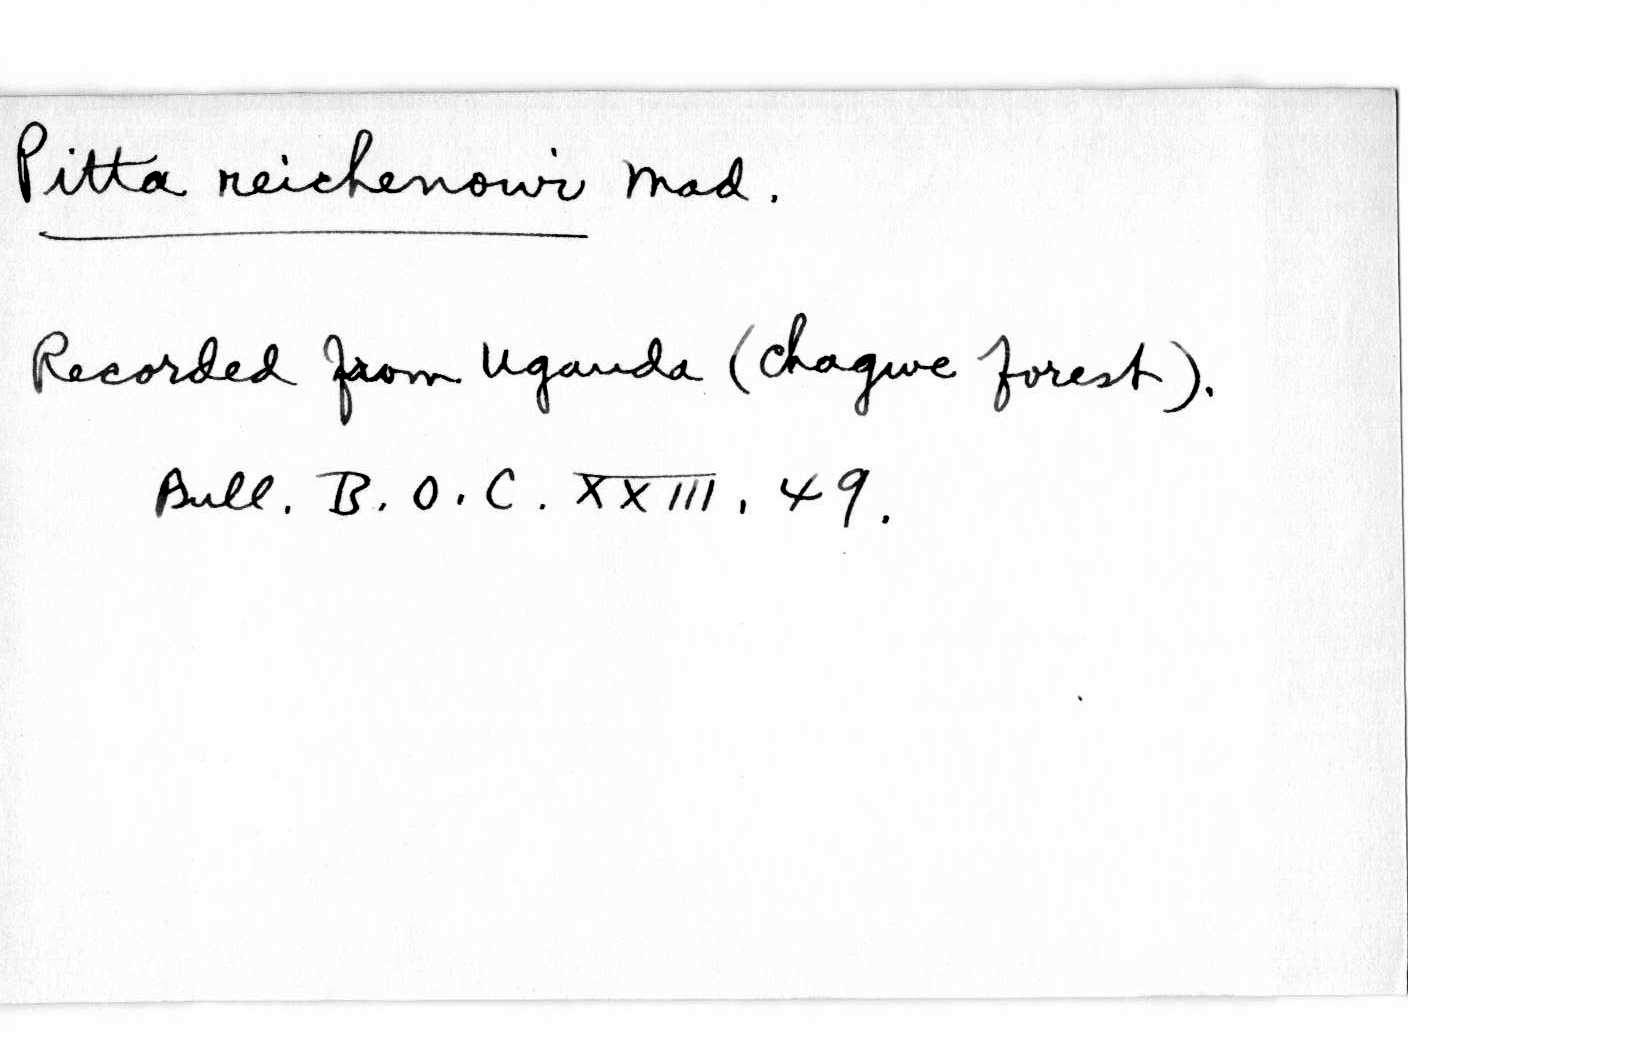 Pitta reichenowi Mad.
Recorded from Uganda (Chagwe forest).
Bull. B.O.C. XXIII, 49.